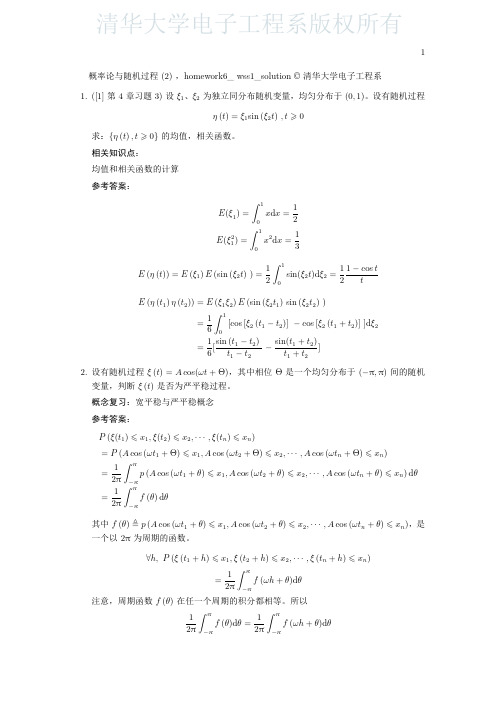 清华大学电子工程系版权所有
1
概率论与随机过程 (2) ，homework6_ wss1_solution © 清华大学电子工程系
1. ([1] 第 4 章习题 3) 设 ξ₁、ξ₂ 为独立同分布随机变量，均匀分布于 (0, 1)。设有随机过程
η (t) = ξ₁sin (ξ₂t) , t ⩾ 0
求：{η (t) , t ⩾ 0} 的均值，相关函数。
相关知识点：
均值和相关函数的计算
参考答案：
E(ξ₁) = ∫₀¹ xdx = 1/2
E(ξ₁²) = ∫₀¹ x²dx = 1/3
E (η (t)) = E (ξ₁) E (sin (ξ₂t) ) = 1/2 ∫₀¹ sin(ξ₂t)dξ₂ = 1/2 (1 − cos t)/t
E (η (t₁) η (t₂)) = E (ξ₁ξ₂) E (sin (ξ₂t₁) sin (ξ₂t₂) )
= 1/6 ∫₀¹ [cos [ξ₂ (t₁ − t₂)] − cos [ξ₂ (t₁ + t₂)] ]dξ₂
= 1/6 [sin (t₁ − t₂)/(t₁ − t₂) − sin(t₁ + t₂)/(t₁ + t₂)]
2. 设有随机过程 ξ (t) = A cos(ωt + Θ)，其中相位 Θ 是一个均匀分布于 (−π, π) 间的随机
变量，判断 ξ (t) 是否为严平稳过程。
概念复习：宽平稳与严平稳概念
参考答案：
P (ξ(t₁) ⩽ x₁, ξ(t₂) ⩽ x₂, ⋯ , ξ(tₙ) ⩽ xₙ)
= P (A cos (ωt₁ + Θ) ⩽ x₁, A cos (ωt₂ + Θ) ⩽ x₂, ⋯ , A cos (ωtₙ + Θ) ⩽ xₙ)
= 1/2π ∫₋π^π p (A cos (ωt₁ + θ) ⩽ x₁, A cos (ωt₂ + θ) ⩽ x₂, ⋯ , A cos (ωtₙ + θ) ⩽ xₙ) dθ
= 1/2π ∫₋π^π f (θ) dθ
其中 f (θ) ≜ p (A cos (ωt₁ + θ) ⩽ x₁, A cos (ωt₂ + θ) ⩽ x₂, ⋯ , A cos (ωtₙ + θ) ⩽ xₙ)，是
一个以 2π 为周期的函数。
∀h, P (ξ (t₁ + h) ⩽ x₁, ξ (t₂ + h) ⩽ x₂, ⋯ , ξ (tₙ + h) ⩽ xₙ)
= 1/2π ∫₋π^π f (ωh + θ)dθ
注意，周期函数 f (θ) 在任一个周期的积分都相等。所以
1/2π ∫₋π^π f (θ)dθ = 1/2π ∫₋π^π f (ωh + θ)dθ